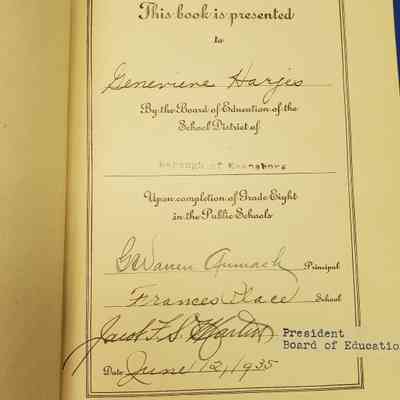 This book is presented
to
Genevieve Harjes
By the Board of Education of the
School District of
Borough of Keansburg
Upon completion of Grade Eight
in the Public Schools
G. Warren Principal
Frances Place School
Jacob F. S. Martin President
Board of Education
Date June 12, 1935